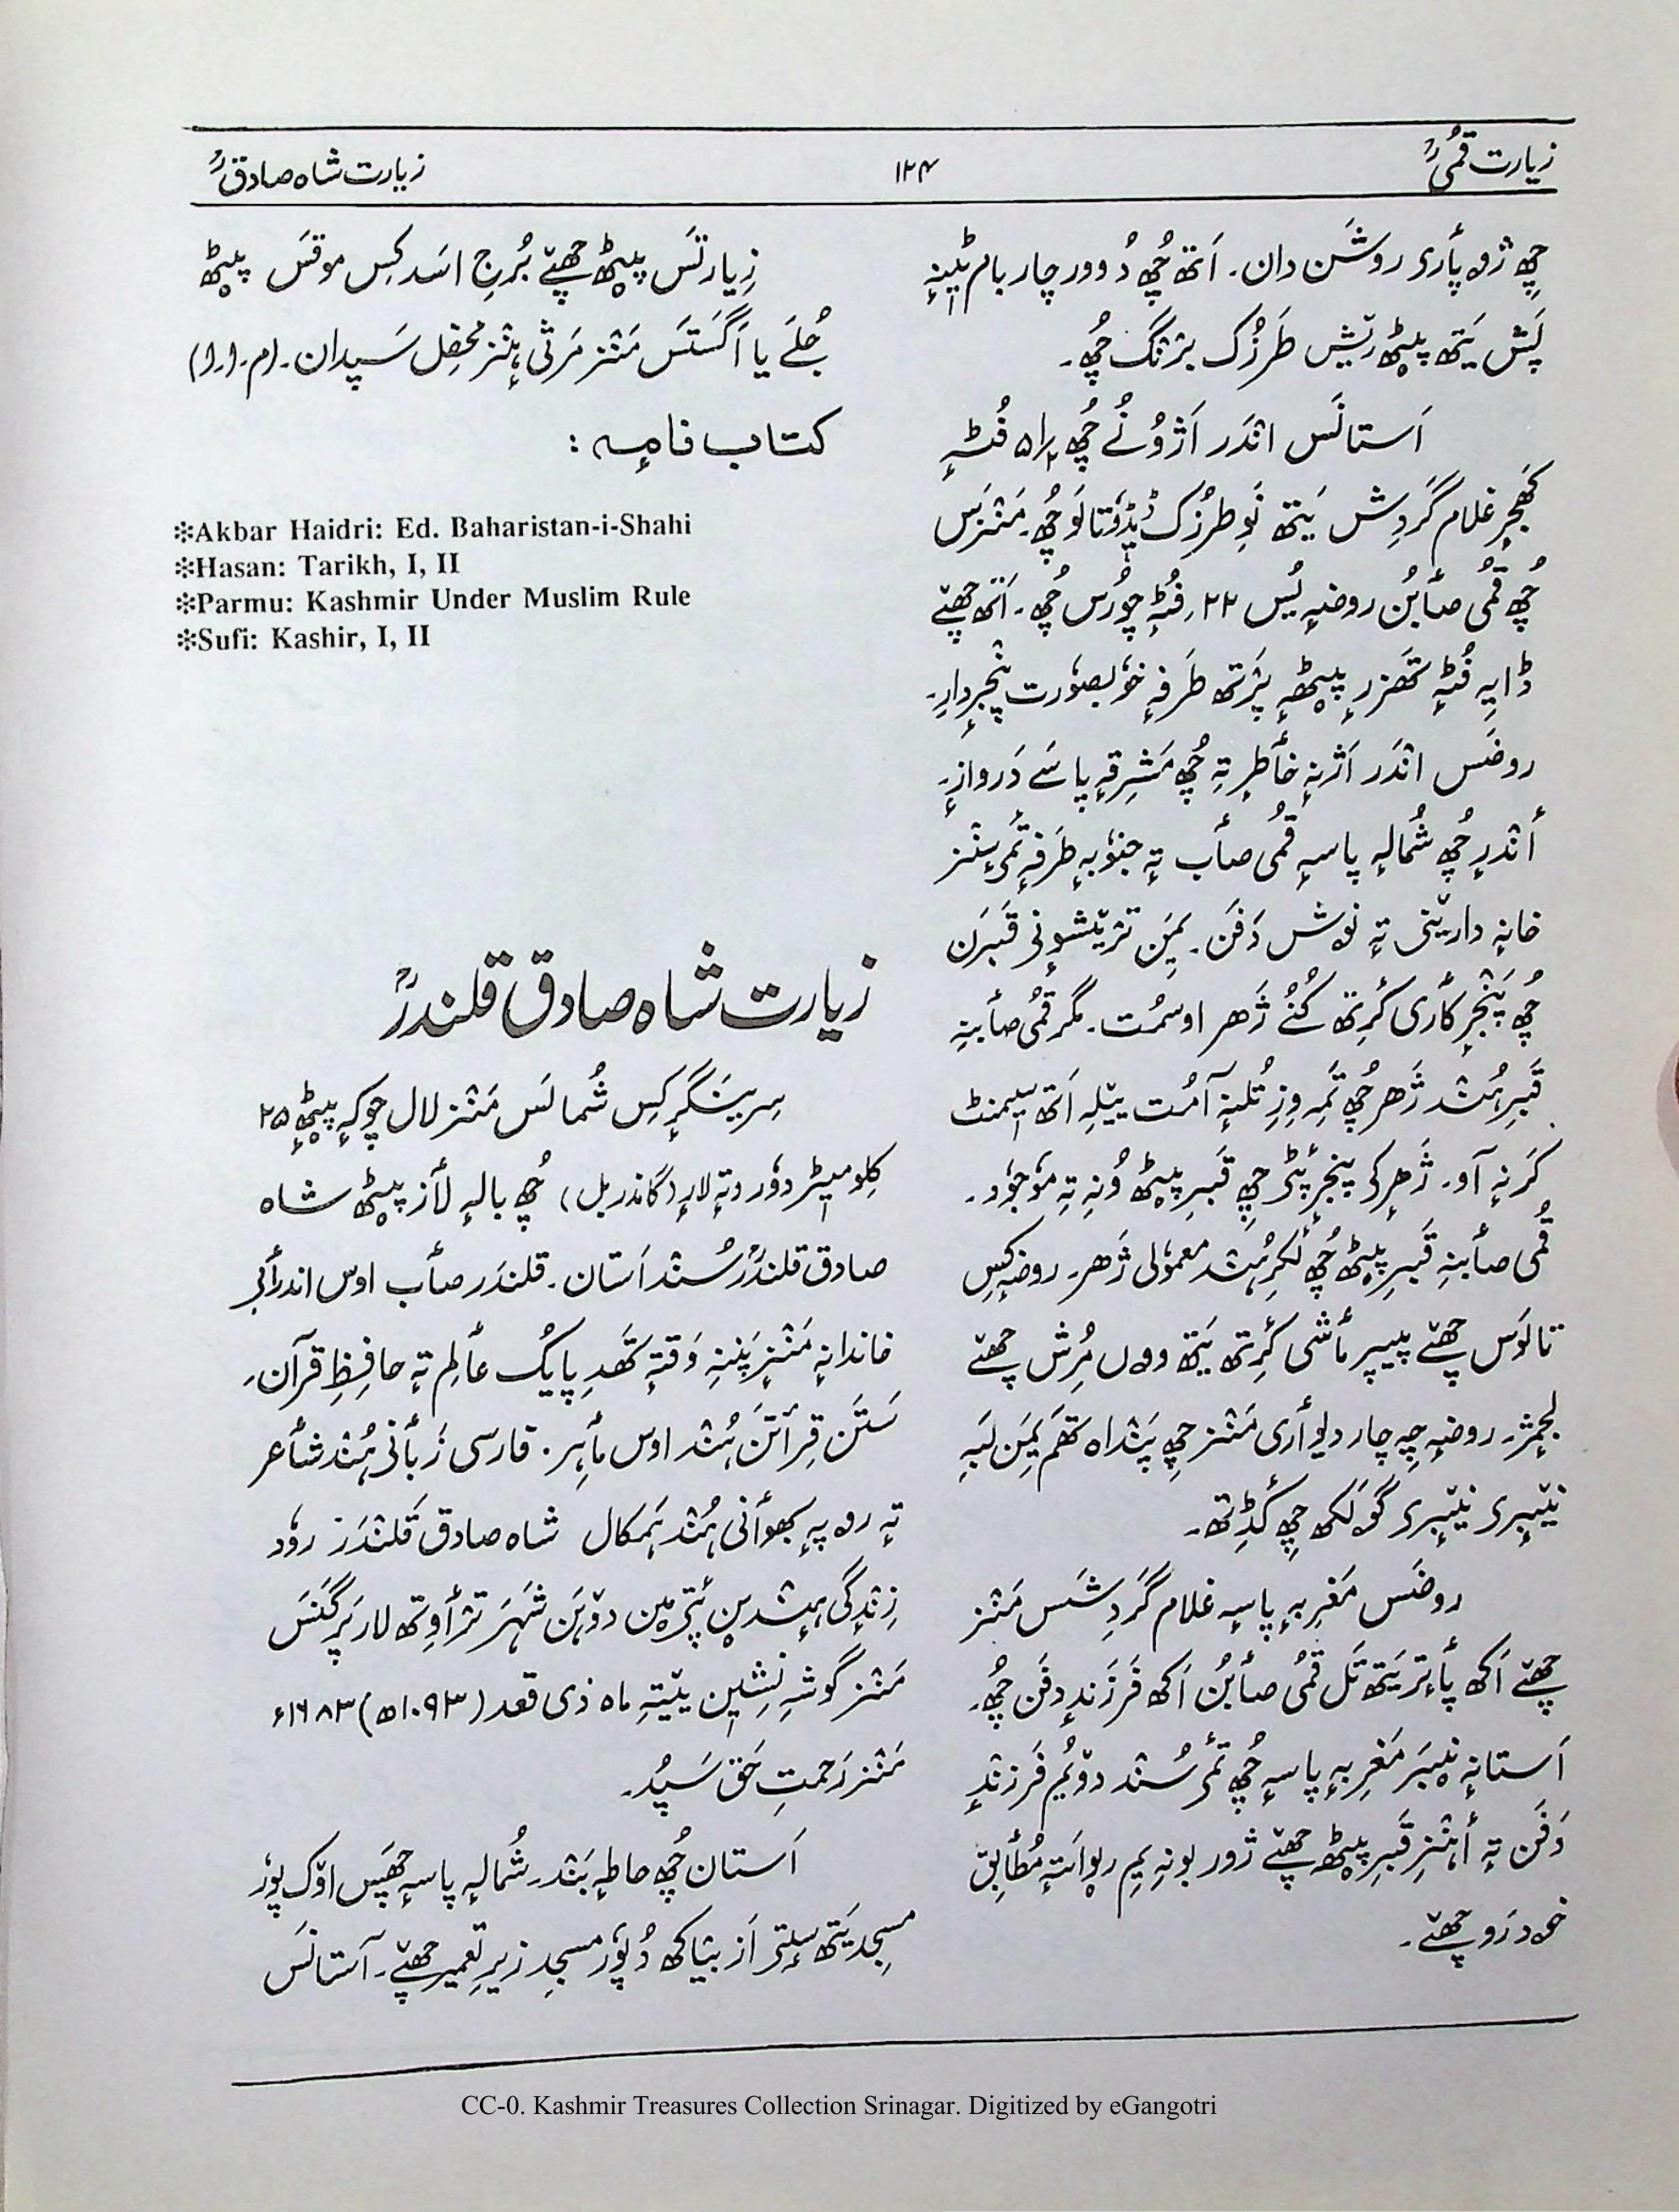 زیارت قمیؒ
۱۲۴
زیارت شاہ صادقؒ
چِھ ژوہ پأری روشَن دان۔ اَتھ چُھ دُوور چار بام ٹِینہِ
پَش یَتھ پیٹھ ریٚش طَرزُک برٛنگ چُھ۔
اَستانَس انٛدَر اَژوُنُے چُھ ۵½ فُٹہِ
کَھجرِ غلام گَردِش یَتھ نَوِ طرزُک ڈِیڈوٗ تالَو چُھ۔ مَنٛزَس
چُھ قُمی صأبُن روضہٕ یُس ۲۲؍ فُٹہٕ چورَس چُھ۔ اَتھ چھےٚ
ڈایہِ فُٹہٕ تَھزرِ پیٹھٕہ پَرٛتھ طَرفہٕ خوٗبصوٗرت پنٛجرِ دارِ۔
روضَس انٛدَر اَژنہٕ خأطرٕ تہِ چُھ مَشرِقہٕ پاسَے دَروازٕ۔
أنٛدرِ چُھ شُمالہٕ پاسہٕ قُمی صأب تہٕ جنوٗبہٕ طَرفہٕ تَمی سٕنٛز
خانہٕ داریٚنی تہٕ نوش دَفَن۔ یِمَن ترٛیٚشوٕنی قَبرَن
چُھ پَنٛجرِ کأری کٔرِتھ کُنُے ژَھر اوسمُت۔ مگر قُمی صأبنہِ
قَبرِ ہُنٛد ژَھر چُھ تَمہِ وِزِ تُلنہٕ آمُت ییٚلہِ اَتھ سیٖمنٹ
کَرنہٕ آو۔ ژَھرٕکی پنٛجرٕ پٔٹی چِھ قَبرِ پیٹھ وُنہِ تہِ موٗجوٗد۔
قُمی صأبنہِ قَبرِ پیٹھ چُھ لَکرِ ہُنٛد معموٗلی ژَھر۔ روضہٕ کِس
تالَوَس چھےٚ پیپر مأشی کٔرِتھ یَتھ وون مُرِش چھےٚ
لجمٕژ۔ روضہٕ چہِ چار دیوأری مَنٛز چِھ پَنٛداہ تَھم یِمَن لَبہِ
نیٚبٕری نیٚبٕری گۆلکھ چِھ گٔڈِتھ۔
روضَس مَغرِبہٕ پاسہٕ غلام گَردِشَس مَنٛز
چھےٚ اَکھ پأنٛتر یَتھ تَل قُمی صأبُن اَکھ فَرزَندٕ دفَن چُھ۔
اَستانہٕ نیٚبرَ مَغرِبہٕ پاسہٕ چُھ تَمی سُنٛد دوٚیُم فَرزنٛدٕ
دَفَن تہٕ أہنٛزِ قَبرِ پیٹھ چھےٚ ژور بونہِ یِم رِوایَتہٕ مُطأبِق
خود رَو چھےٚ۔
زِیارتَس پیٹھ چھےٚ بُرجِ اسَد کِس موقَس پیٹھ
جُلَے یا اَگَستَس مَنٛز مَرثی ہٕنٛز محفِل سَپدان۔ (م۔ا۔ا)
کتاب نامہٕ :
❊Akbar Haidri: Ed. Baharistan-i-Shahi
❊Hasan: Tarikh, I, II
❊Parmu: Kashmir Under Muslim Rule
❊Sufi: Kashir, I, II
زیارت شاہ صادق قلندرؒ
سِرینَگرٕ کِس شُمالَس مَنٛز لال چوکہٕ پیٹھٕ ۲۵
کِلومیٖٹر دوٗر وتہٕ لارٕ (گاندربل) چُھ بالہٕ لأز پیٹھ شاہ
صادق قلندَرؒ سُنٛد اَستان۔ قلندَر صأب اوس اندرأبی
خاندانہٕ مَنٛزٕ پَننہِ وَقتہٕ تَھدِ پایُک عألِم تہٕ حافِظِ قرآن۔
سَتَن قِرأتَن ہُنٛد اوس مأہِر۔ فارسی زَبأنی ہُنٛد شأعر
تہٕ روہ پہٕ بھوأنی ہُنٛد ہَمکال شاہ صادق قَلنٛدَرؒ روٗد
زِنٛدگی ہٕنٛدین پٔتیمین دۄہَن شَہرَ ترٛأوِتھ لار پَرگَنَس
مَنٛز گوشہِ نشِیٖن ییٚتہِ ماہ ذی قعد (۱۰۹۳ھ) ۱۶۸۳ء
مَنٛز رَحمتِ حَق سَپُد۔
اَستان چُھ حاطہٕ بَنٛد۔ شُمالہٕ پاسہٕ چَھپَس اوٚک پوٗر
مسجِد یَتھ سٕتی اَز بیٛاکھ دُپوٗر مسجِد زیرِ تعمیر چھےٚ۔ آستانَس
CC-0. Kashmir Treasures Collection Srinagar. Digitized by eGangotri